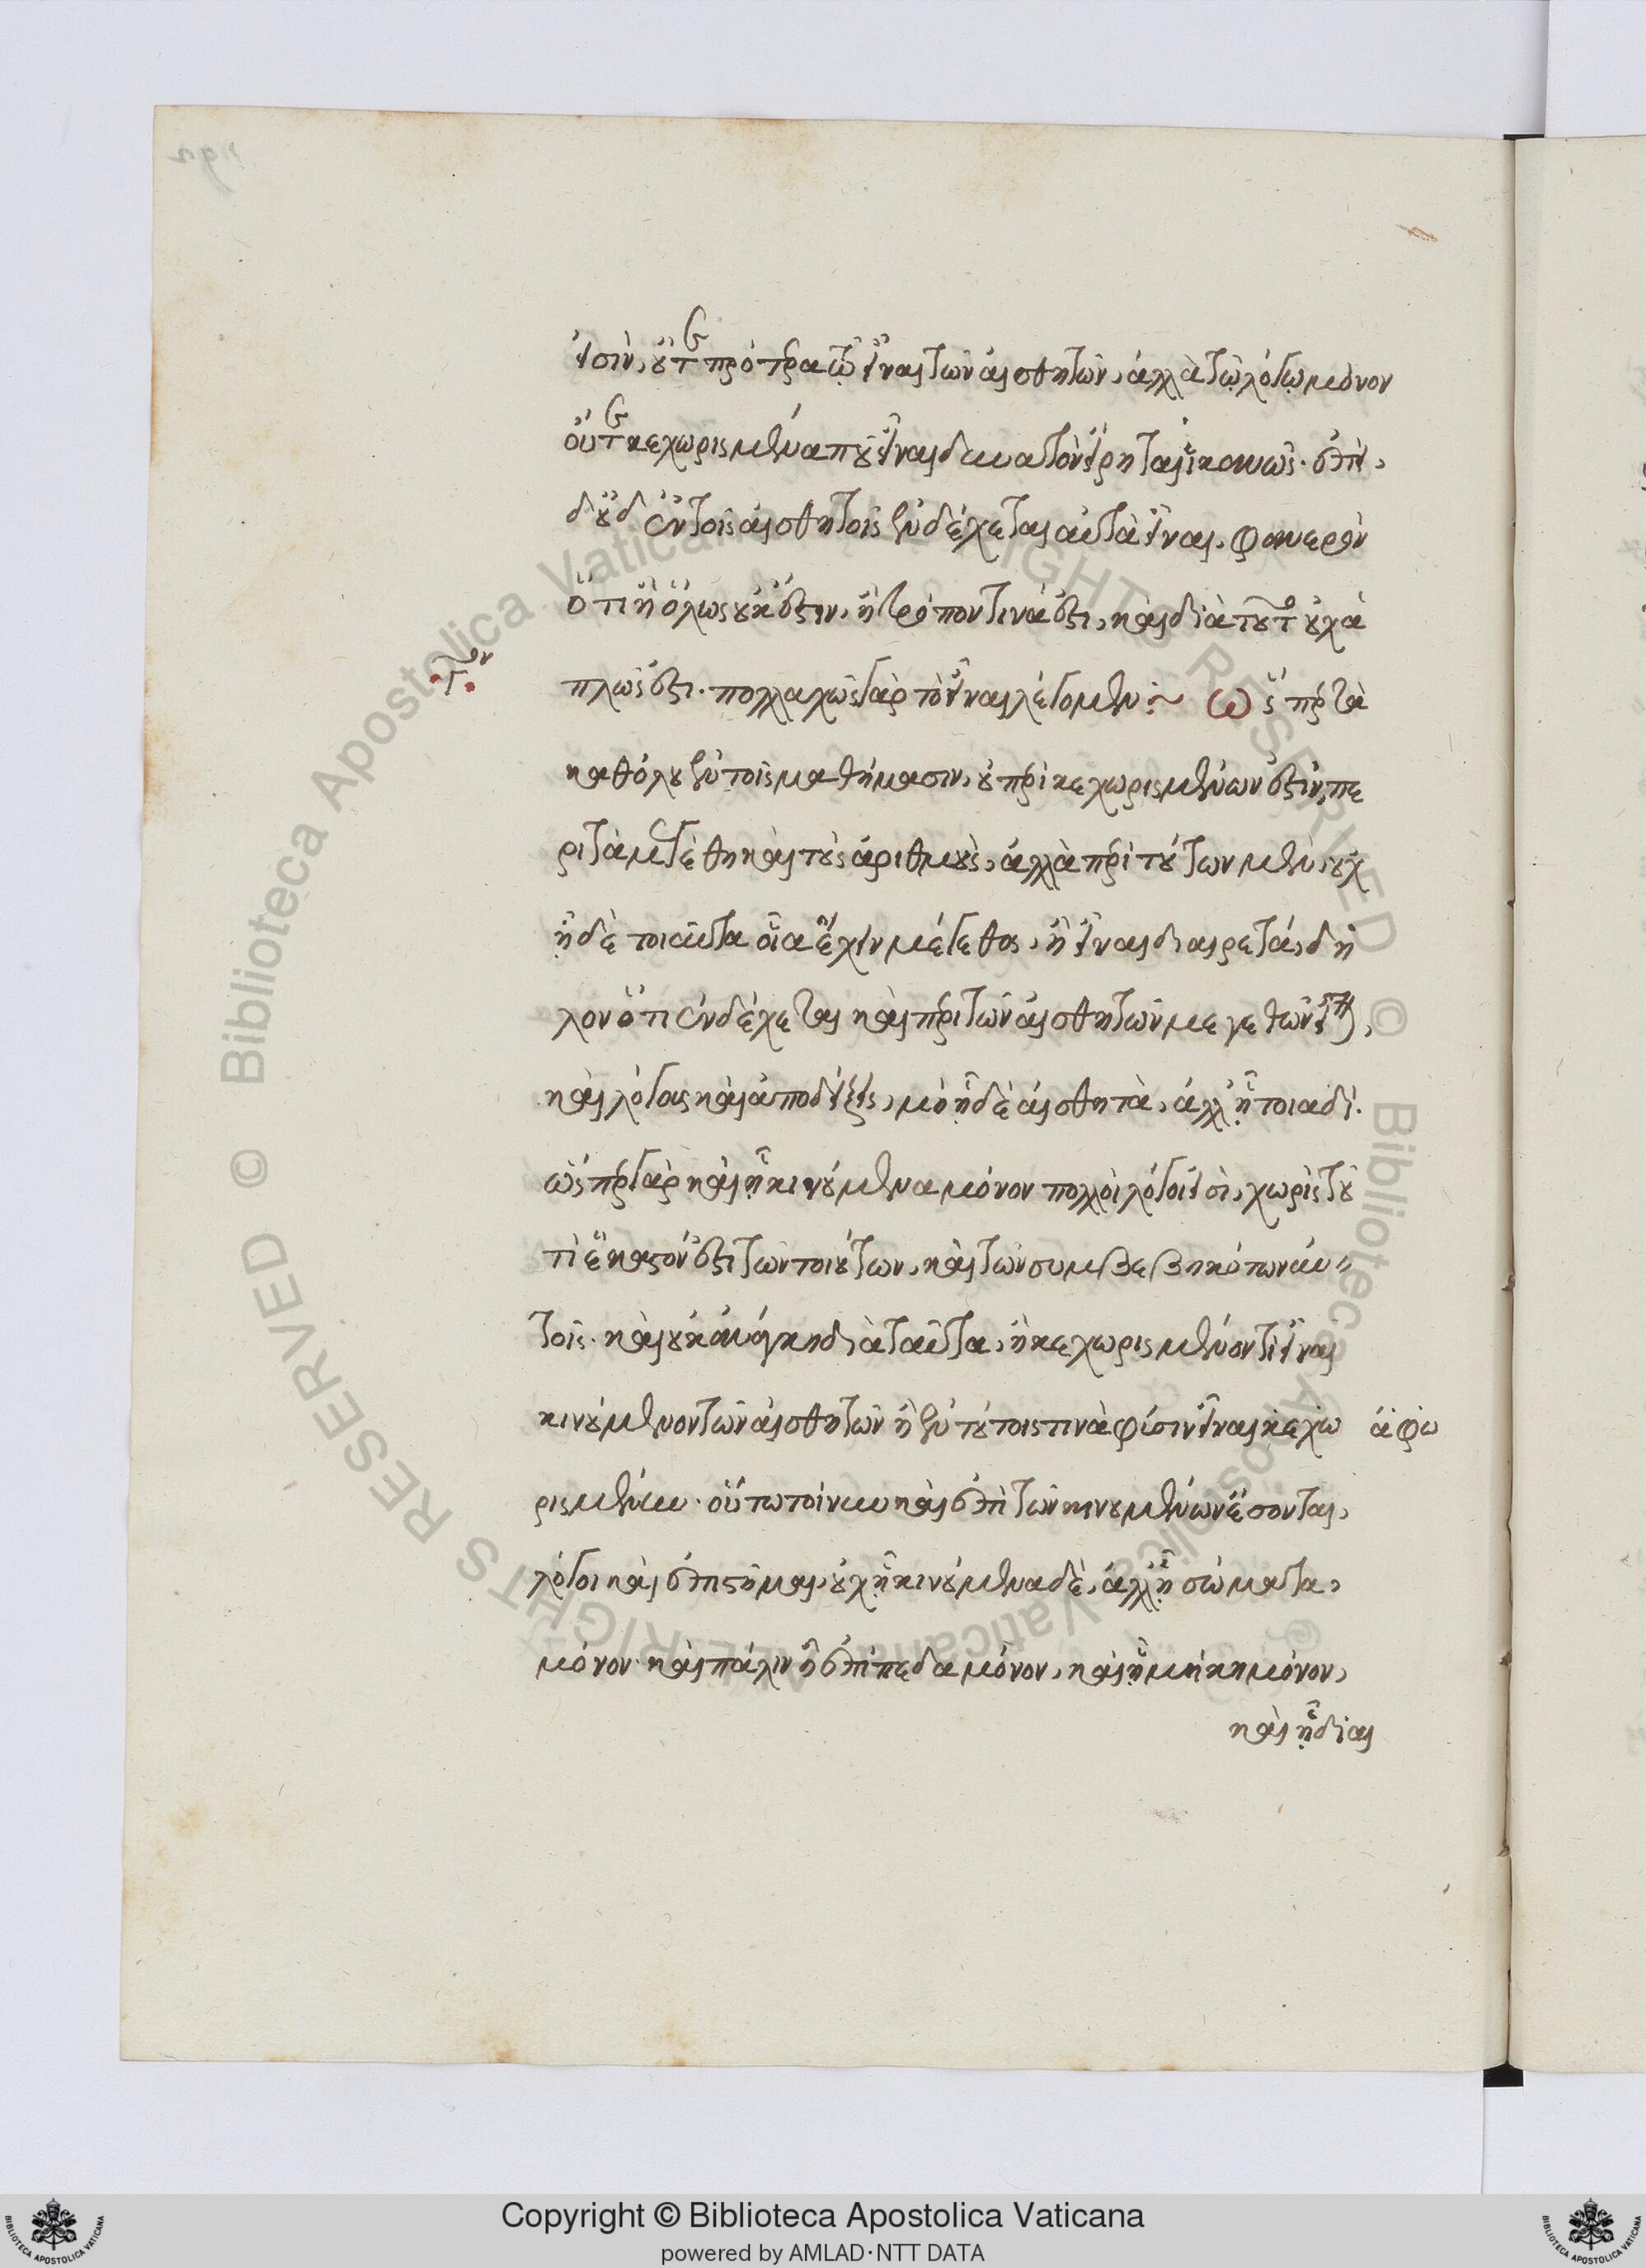 εἰσὶν, οὔτε πρότερα τῷ εἶναι τῶν αἰσθητῶν, ἀλλὰ τῷ λόγῳ μόνον
οὔτε κεχωρισμένα που εἶναι δυνατὸν εἴρηται ἱκανῶς. ἐπεὶ,
δ' οὐδ' ἐν τοῖς αἰσθητοῖς ἐνδέχεται αὐτὰ εἶναι, φανερὸν
ὅτι ἢ ὅλως οὐκ ἔστιν, ἢ τρόπον τινὰ ἔστι, καὶ διὰ τοῦτο οὐχ ἁ
πλῶς ἔστι. πολλαχῶς γὰρ τὸ εἶναι λέγομεν :~ Ὥσπερ τὰ
καθόλου ἐν τοῖς μαθήμασιν, οὐ περὶ κεχωρισμένων ἐστὶν, πα
ρὶ τὰ μεγέθη καὶ τοὺς ἀριθμοὺς, ἀλλὰ περὶ τούτων μὲν, οὐχ
ᾗ δὲ τοιαῦτα οἷα ἔχειν μέγεθος, ἢ εἶναι διαιρετά, δῆ
λον ὅτι ἐνδέχεται καὶ περὶ τῶν αἰσθητῶν μεγεθῶν εἶναι,
καὶ λόγους καὶ ἀποδείξεις, μὴ ᾗ δὲ αἰσθητὰ, ἀλλ' ᾗ τοιαδί.
ὥσπερ γὰρ καὶ ᾗ κινούμενα μόνον πολλοὶ λόγοι εἰσὶ, χωρὶς τοῦ
τί ἕκαστόν ἐστι τῶν τοιούτων, καὶ τῶν συμβεβηκότων αὐ
τοῖς. καὶ οὐκ ἀνάγκη διὰ ταῦτα, ἢ κεχωρισμένον τι εἶναι
κινούμενον τῶν αἰσθητῶν ἢ ἐν τούτοις τινὰ φύσιν εἶναι κεχω
ρισμένην. οὕτω τοίνυν καὶ ἐπὶ τῶν κινουμένων ἔσονται,
λόγοι καὶ ἐπιστῆμαι, οὐχ ᾗ κινούμενα δὲ, ἀλλ' ᾗ σώματα,
μόνον. καὶ πάλιν ᾗ ἐπίπεδα μόνον, καὶ ᾗ μήκη μόνον,
καὶ ᾗ διαι
ἀφω